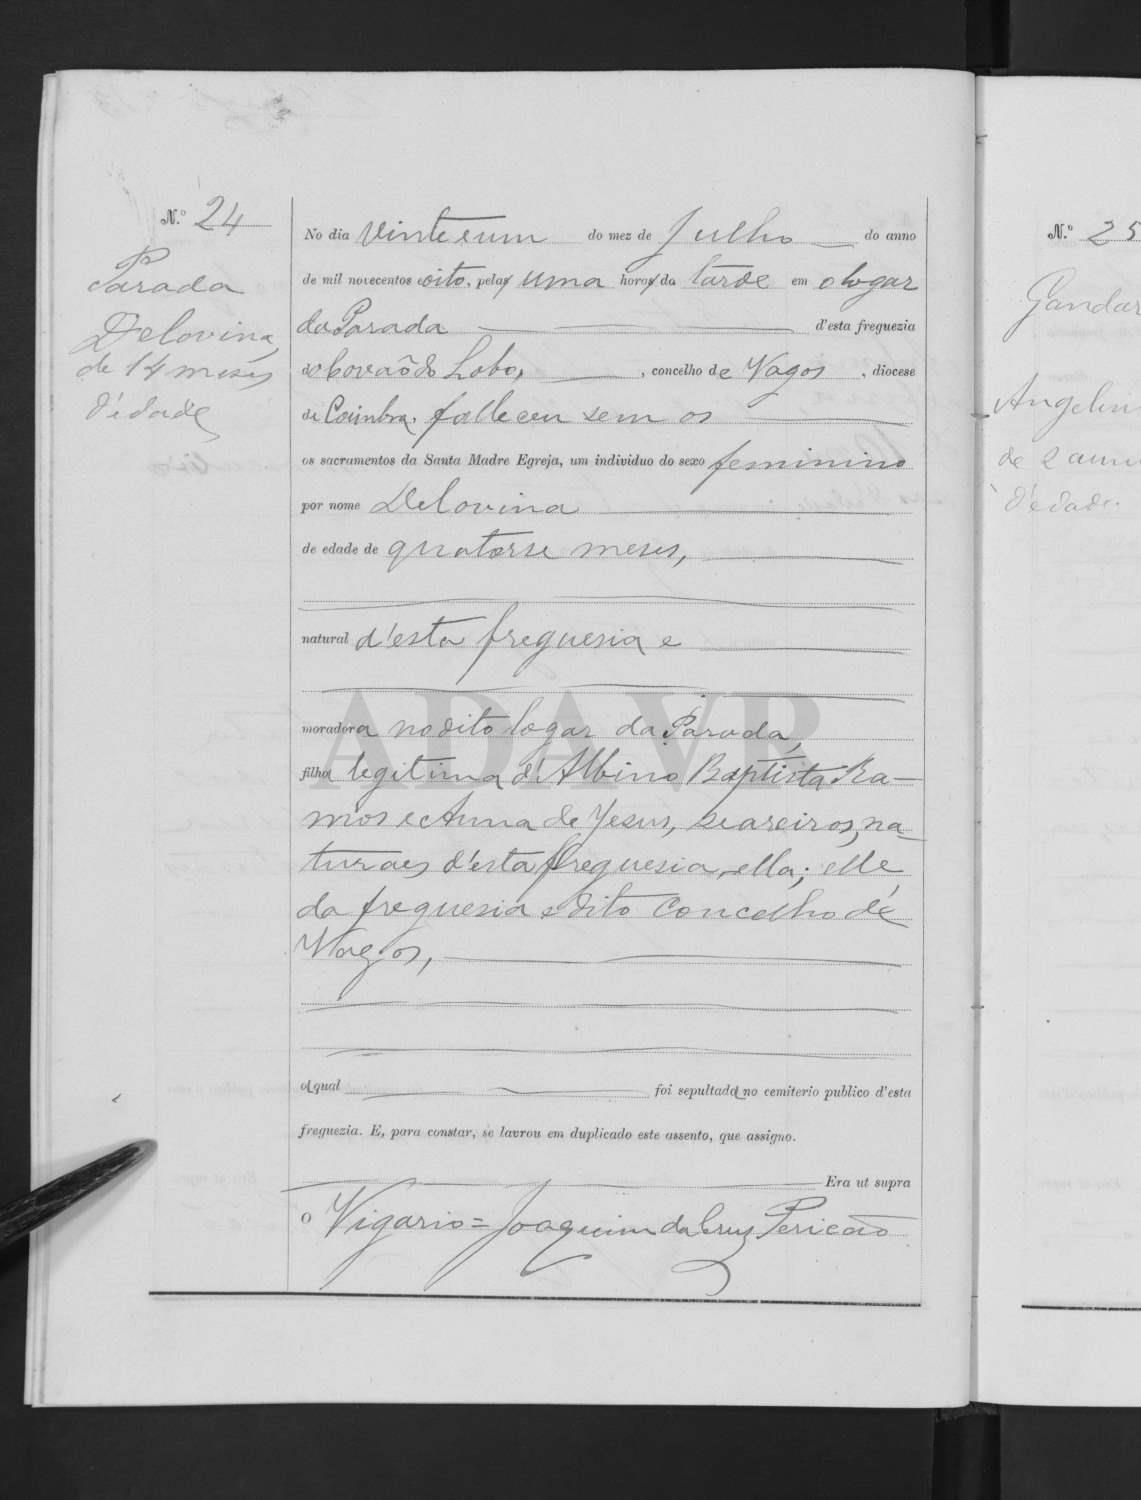 N.º 24
Parada
Delovina,
de 14 meses
d'edade
No dia vinte e um do mez de Julho do anno
de mil novecentos e oito, pelas uma horas da tarde em o logar
da Parada d'esta freguezia
do Covão do Lobo, concelho de Vagos, diocese
de Coimbra, falleceu sem os
os sacramentos da Santa Madre Egreja, um individuo do sexo feminino
por nome Delovina
de edade de quatorse meses,
natural d'esta freguesia e
moradora no dito logar da Parada,
filha legitima d'Albino Baptista Ra-
mos e Anna de Jesus, seareiros, na-
turaes d'esta freguesia, ella; elle
da freguesia e dito concelho de
Vagos,
o qual foi sepultada no cemiterio publico d'esta
freguezia. E, para constar, se lavrou em duplicado este assento, que assigno.
Era ut supra
O Vigario = Joaquim da Cruz Pericão
ADAVR
N.º 25
Gandar
Angelin
de 2 ann
d'edade.